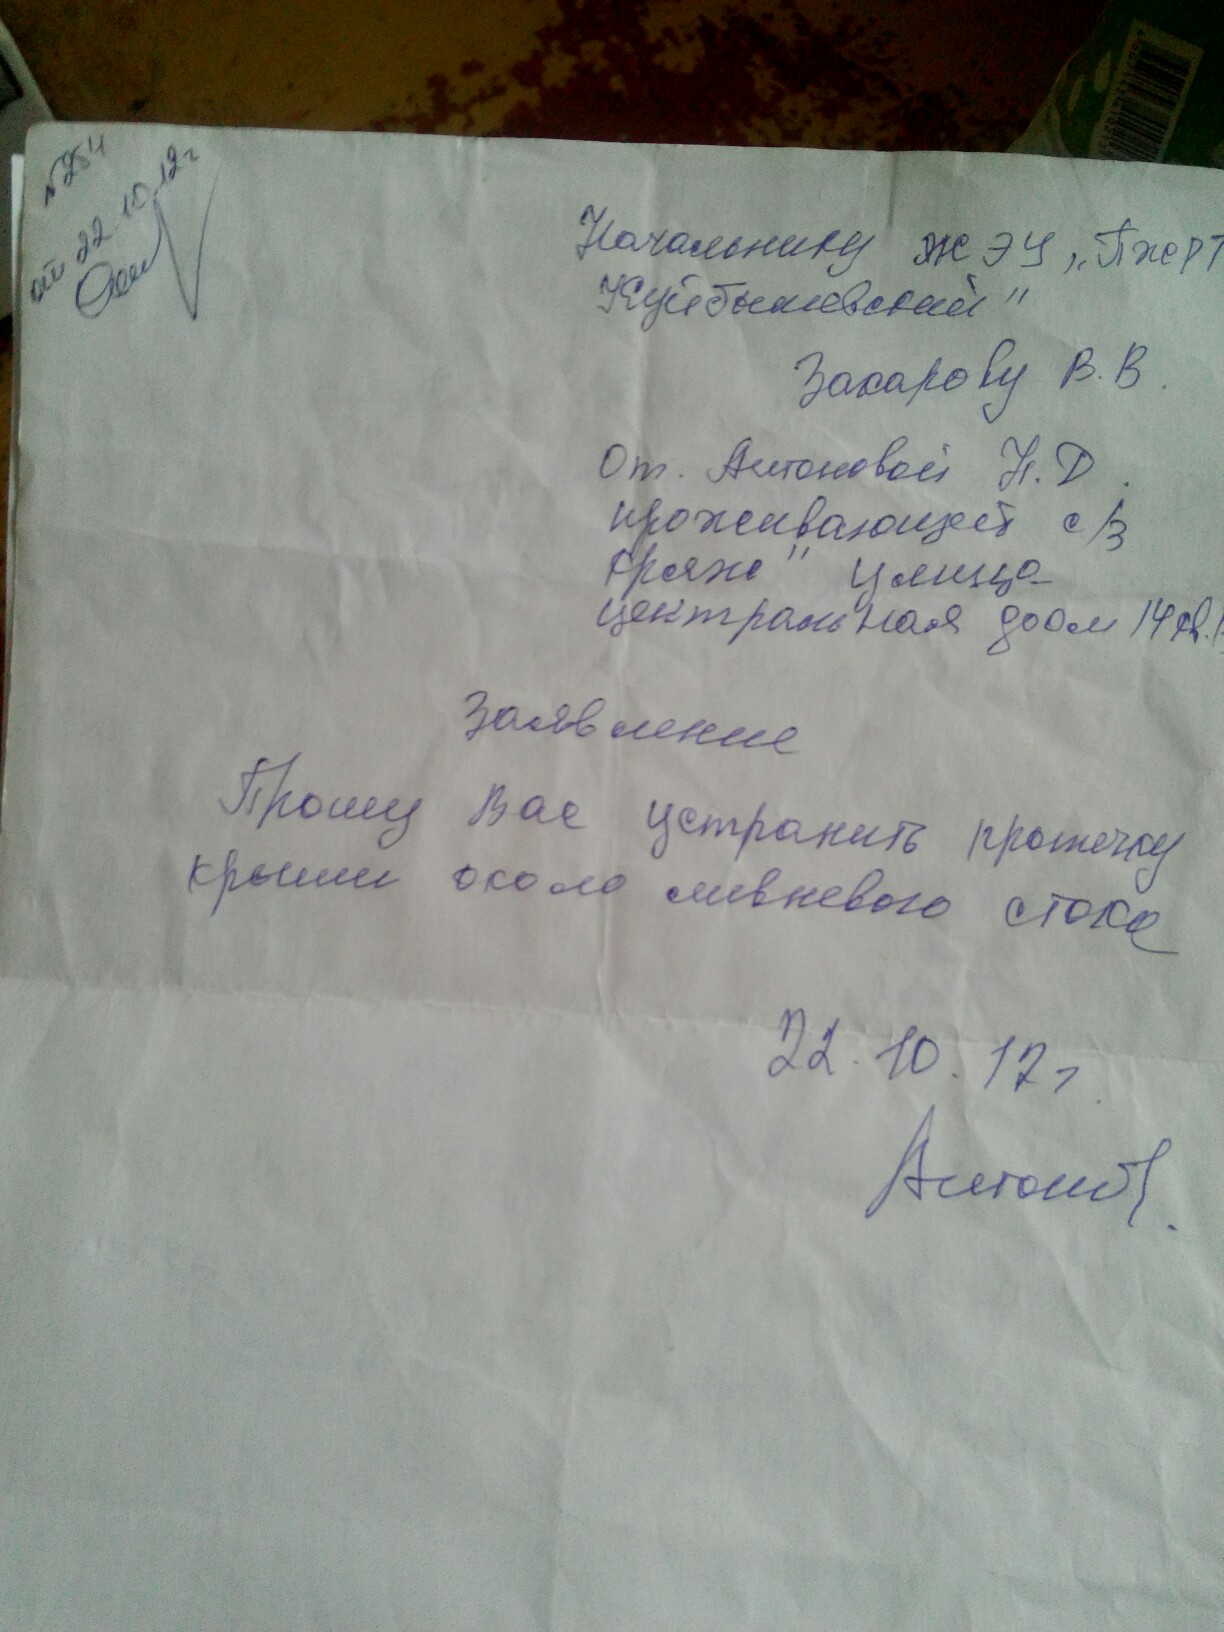 №284
от 22.10.12г
Начальнику ЖЭУ „Пжерт
Куйбышевский"
Захарову В.В.
От. Антоновой Н.Д.
проживающей с/з
Кряж" улица
центральная доом 14 кв.
Заявление
Прошу Вас устранить протечку
крыши около ливневого стока
22.10.12г.